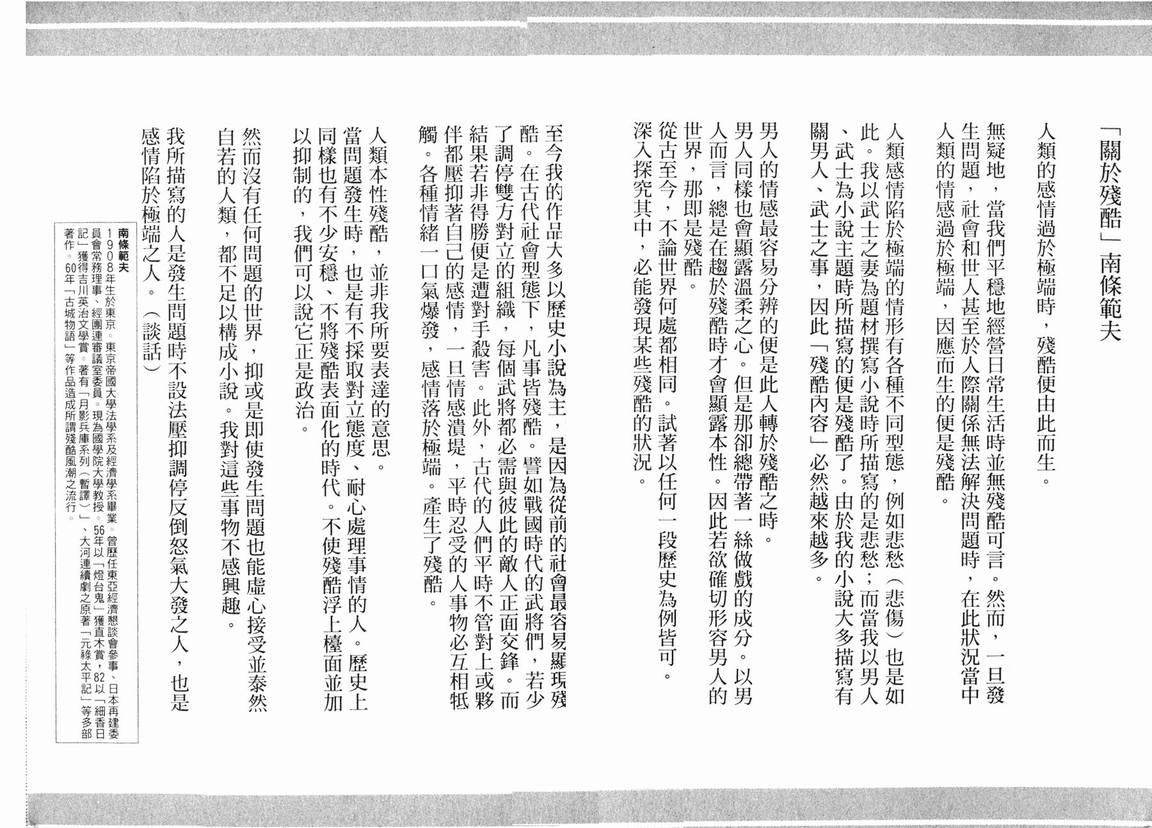 「關於殘酷」南條範夫
人類的感情過於極端時，殘酷便由此而生。
無疑地，當我們平穩地經營日常生活時並無殘酷可言。然而，一旦發
生問題，社會和世人甚至於人際關係無法解決問題時，在此狀況當中
人類的情感過於極端，因應而生的便是殘酷。
人類感情陷於極端的情形有各種不同型態，例如悲愁（悲傷）也是如
此。我以武士之妻為題材撰寫小說時所描寫的是悲愁；而當我以男人
、武士為小說主題時所描寫的便是殘酷了。由於我的小說大多描寫有
關男人、武士之事，因此「殘酷內容」必然越來越多。
男人的情感最容易分辨的便是此人轉於殘酷之時。
男人同樣也會顯露溫柔之心。但是那卻總帶著一絲做戲的成分。以男
人而言，總是在趨於殘酷時才會顯露本性。因此若欲確切形容男人的
世界，那即是殘酷。
從古至今，不論世界何處都相同。試著以任何一段歷史為例皆可。
深入探究其中，必能發現某些殘酷的狀況。
至今我的作品大多以歷史小說為主，是因為從前的社會最容易顯現殘
酷。在古代社會型態下，凡事皆殘酷。譬如戰國時代的武將們，若少
了調停雙方對立的組織，每個武將都必需與彼此的敵人正面交鋒。而
結果若非得勝便是遭對手殺害。此外，古代的人們平時不管對上或夥
伴都壓抑著自己的感情，一旦情感潰堤，平時忍受的人事物必互相牴
觸。各種情緒一口氣爆發，感情落於極端。產生了殘酷。
人類本性殘酷，並非我所要表達的意思。
當問題發生時，也是有不採取對立態度、耐心處理事情的人。歷史上
同樣也有不少安穩、不將殘酷表面化的時代。不使殘酷浮上檯面並加
以抑制的，我們可以說它正是政治。
然而沒有任何問題的世界，抑或是即使發生問題也能虛心接受並泰然
自若的人類，都不足以構成小說。我對這些事物不感興趣。
我所描寫的人是發生問題時不設法壓抑調停反倒怒氣大發之人，也是
感情陷於極端之人。（談話）
南條範夫
1908年生於東京。東京帝國大學法學系及經濟學系畢業。曾歷任東亞經濟懇談會參事、日本再建委
員會常務理事、經團連審議室委員。現為國學院大學教授。56年以「燈台鬼」獲直木賞，82以「細香日
記」獲得吉川英治文學賞。著有「月影兵庫系列（暫譯）」、大河連續劇之原著「元祿太平記」等多部
著作。60年「古城物語」等作品造成所謂殘酷風潮之流行。